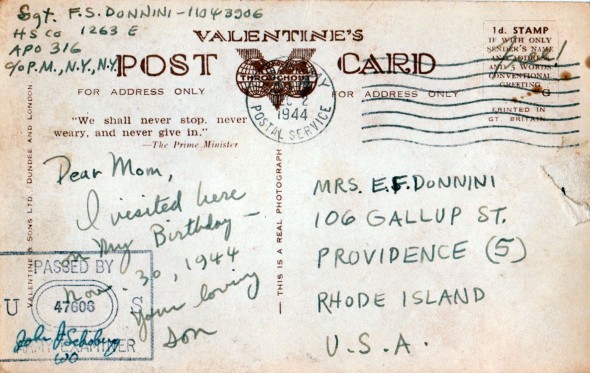 Sgt. F.S. DONNINI-11043906
HS Co 1263 E
APO 316
c/o P.M., N.Y., N.Y.
VALENTINE'S
POST CARD
FOR ADDRESS ONLY
FOR ADDRESS ONLY
1d. STAMP
IF WITH ONLY
SENDER'S NAME
AND 5 WORDS
CONVENTIONAL
GREETING
PRINTED IN
GT. BRITAIN
2
1944
POSTAL SERVICE
"We shall never stop, never
weary, and never give in."
—The Prime Minister
Dear Mom,
I visited here
on my Birthday—
Nov. 30, 1944
Your loving
Son
PASSED BY
U 47606 S
ARMY EXAMINER
WO
VALENTINE & SONS LTD. DUNDEE AND LONDON
THIS IS A REAL PHOTOGRAPH
MRS. E.F. DONNINI
106 GALLUP ST.
PROVIDENCE (5)
RHODE ISLAND
U.S.A.